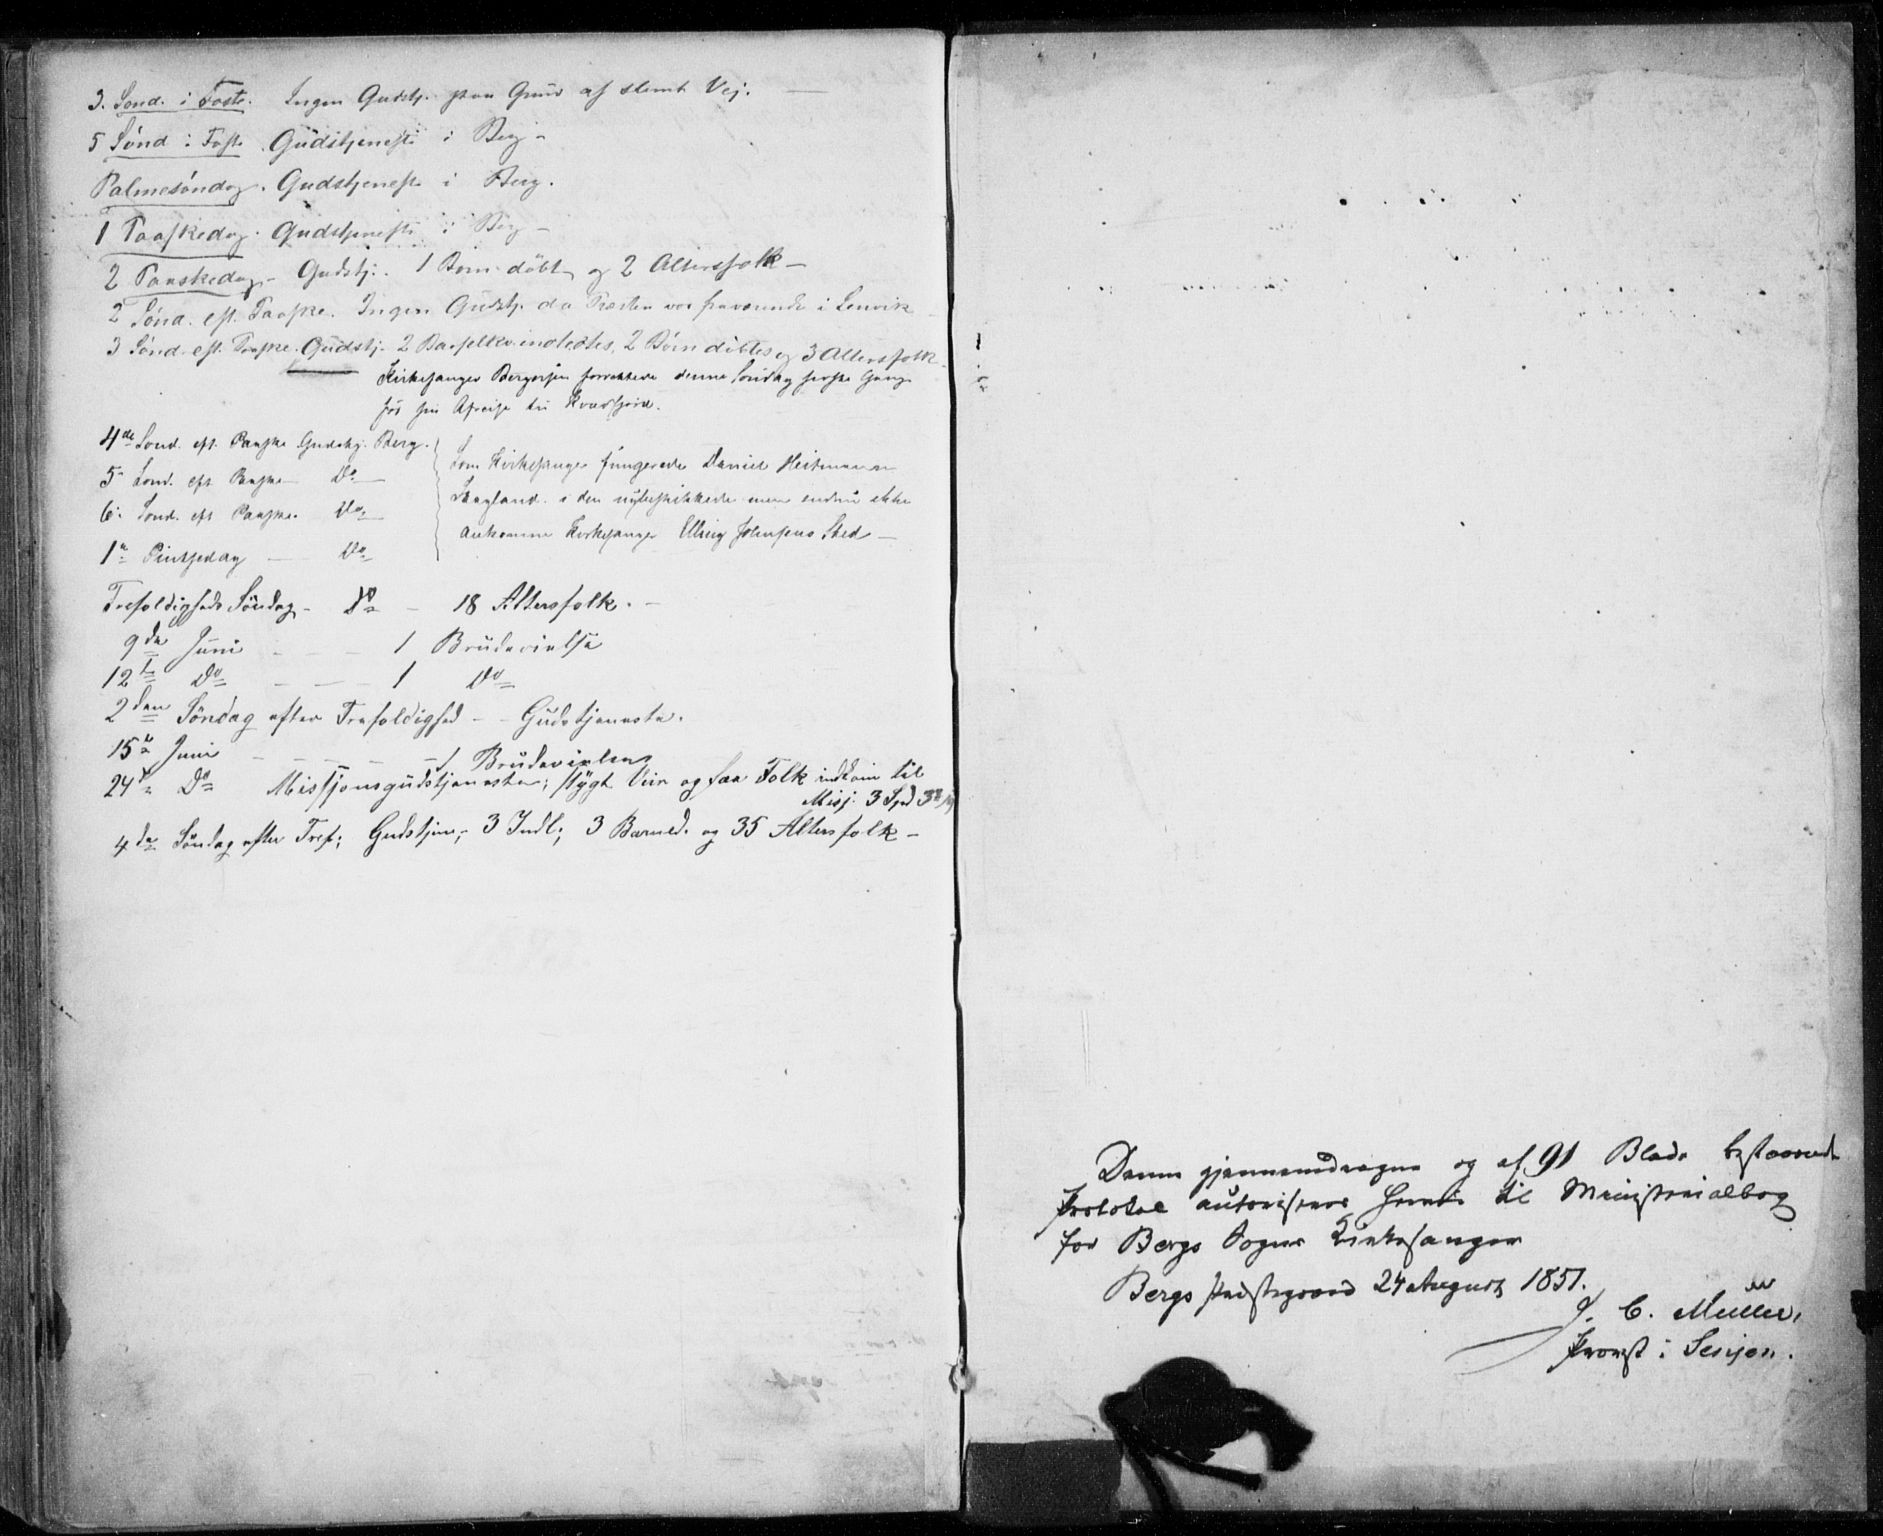 3. Sønd. i Faste. Ingen Gudstj. paa Grund af slemt Vej. —
5 Sønd i Faste Gudstjeneste i Berg —
Palmesøndag. Gudstjeneste i Berg.
1 Paaskedag. Gudstjeneste i Berg —
2 Paaskedag — Gudstj. 1 Barn døbt og 2 Altersfolk —
2 Sønd. eft. Paaske. Ingen Gudstj. da Præsten var fraværende i Lenvik
3 Sønd. eft. Paaske. Gudstj. 2 Barselkv. indledtes, 2 Børn døbtes og 3 Altersfolk.
Kirkesanger Bergersen forrettede denne Søndag sidste Gang
før sin Afreise til Kvæfjord.
4de Sønd. eft. Paaske Gudstj. Berg.
5 Sønd. eft Paaske — Do —
6. Sønd. eft Paaske. Do
1ste Pintsedag — Do
Som Kirkesanger fungerede Daniel Heitmann
Skogland i den nybeskikkede men endnu ikke
ankomne Kirkesanger Elling Johnsens Sted —
Trefoldigheds Søndag — Do — 18 Altersfolk. —
9de Juni — — — 1 Brudevielse
12te Do — — — 1 Do
2den Søndag efter Trefoldighed — — Gudstjeneste.
15de Juni — — — — — 1 Brudevielse
24de Do Missjonsgudstjeneste; stygt Veir og faa Folk indkom til
Misj. 3 Spd 3
4de Søndag efter Tref; Gudstjen; — 3 Indl; 3 Barned. og 35 Altersfolk —
Denne gjennemdragne og af 91 Blade bestaaende
Protokol autoriseres herved til Ministerialbog
for Bergs Sogns Kirkesanger
Bergs Præstegaard 24 August 1851.
J. C. Müller,
Provst i Senjen.